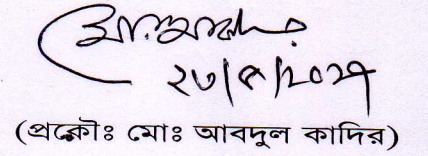 ২৩/৫/২০২৭
(প্রকৌঃ মোঃ আবদুল কাদির)